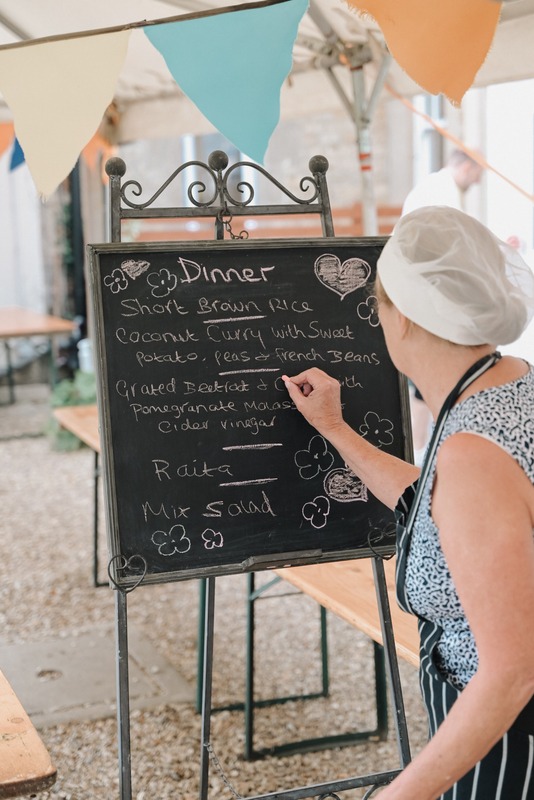 Dinner
Short Brown Rice
Coconut Curry with Sweet
Potato, Peas & French Beans
Grated Beetroot & C
Pomegranate Molass
Cider vinegar
Raita
Mix Salad